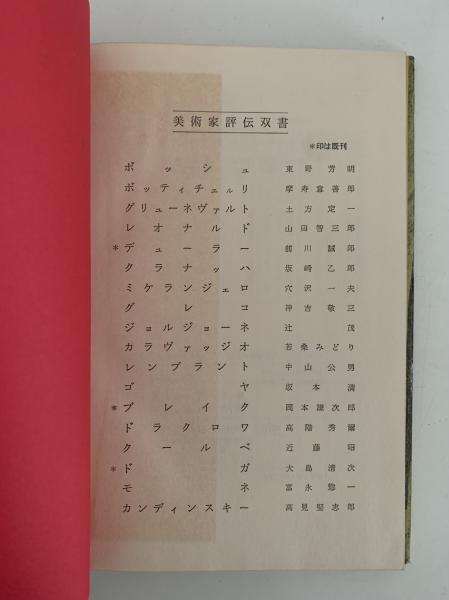 美術家評伝双書
*印は既刊
ボッシュ 東野芳明
ボッティチェルリ 摩寿意善郎
グリューネヴァルト 土方定一
レオナルド 山田智三郎
*デューラー 前川誠郎
クラナッハ 坂崎乙郎
ミケランジェロ 穴沢一夫
グレコ 神吉敬三
ジョルジョーネ 辻茂
カラヴァッジオ 若桑みどり
レンブラント 中山公男
ゴヤ 坂本満
*ブレイク 岡本謙次郎
ドラクロワ 高階秀爾
クールベ 近藤昭
*ドガ 大島清次
モネ 富永惣一
カンディンスキー 高見堅志郎